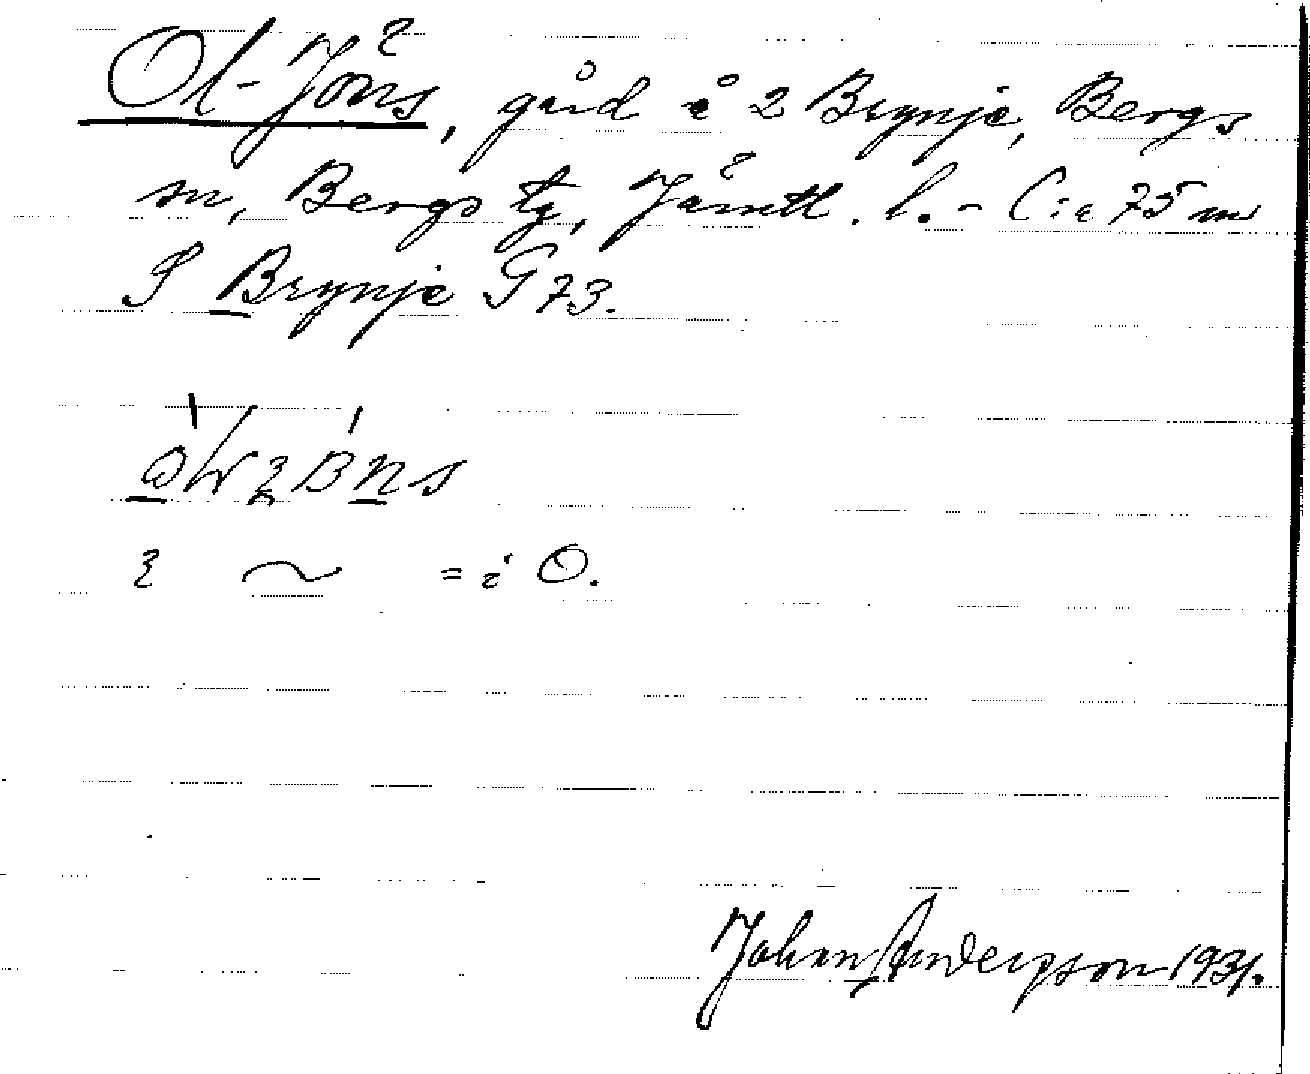 Ol-Jöns, gård å 2 Brynje, Bergs
sn, Bergs tg, Jämtl. l. - C:a 75 m
S Brynje G 73.
= i O.
Johan Anderson 1931.